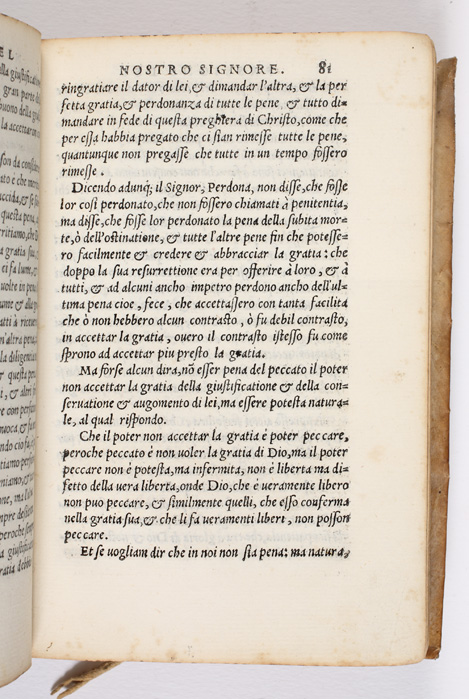 NOSTRO SIGNORE. 81
ringratiare il dator di lei, & dimandar l'altra, & la per
fetta gratia, & perdonanza di tutte le pene, & tutto di=
mandare in fede di questa preghiera di Christo, come che
per essa habbia pregato che ci sian rimesse tutte le pene,
quantunque non pregasse che tutte in un tempo fossero
rimesse.
Dicendo adunq; il Signor, Perdona, non disse, che fosse
lor così perdonato, che non fossero chiamati à penitentia,
ma disse, che fosse lor perdonato la pena della subita mor=
te, ò dell'ostinatione, & tutte l'altre pene fin che potesse=
ro facilmente & credere & abbracciar la gratia: che
doppo la sua resurrettione era per offerire à loro, & à
tutti, & ad alcuni ancho impetro perdono ancho dell'ul=
tima pena cioe, fece, che accettassero con tanta facilità
che ò non hebbero alcun contrasto, ò fu debil contrasto,
in accettar la gratia, ouero il contrasto istesso fu come
sprono ad accettar piu presto la gratia.
Ma forse alcun dira, nõ esser pena del peccato il poter
non accettar la gratia della giustificatione & della con=
seruatione & augomento di lei, ma essere potesta natura=
le, al qual rispondo.
Che il poter non accettar la gratia è poter peccare,
peroche peccato è non uoler la gratia di Dio, ma il poter
peccare non è potestà, ma infermita, non è libertà ma di=
fetto della vera libertà, onde Dio, che è veramente libero
non puo peccare, & similmente quelli, che esso conferma
nella gratia sua, & che li fa veramenti liberi, non posson
peccare.
Et se vogliam dir che in noi non sia pena: ma natura,